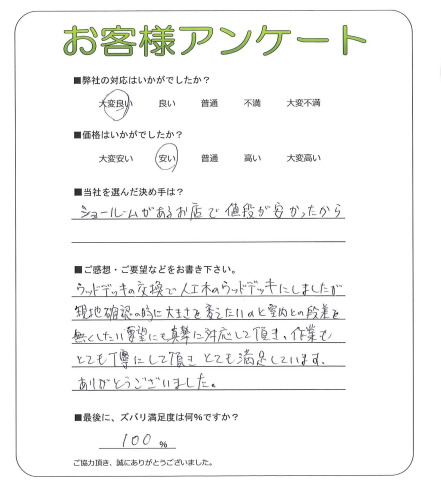 お客様アンケート
■弊社の対応はいかがでしたか？
大変良い 良い 普通 不満 大変不満
■価格はいかがでしたか？
大変安い 安い 普通 高い 大変高い
■当社を選んだ決め手は？
ショールームがあるお店で値段が安かったから
■ご感想・ご要望などをお書き下さい。
ウッドデッキの交換で人工木のウッドデッキにしましたが
現地確認の時に大きさを変えたいのと室内との段差を
無くしたい要望にも真摯に対応して頂き、作業も
とても丁寧にして頂きとても満足しています。
ありがとうございました。
■最後に、ズバリ満足度は何％ですか？
100 ％
ご協力頂き、誠にありがとうございました。